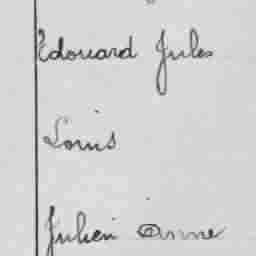 Edouard Jules
Louis
Julien Anne